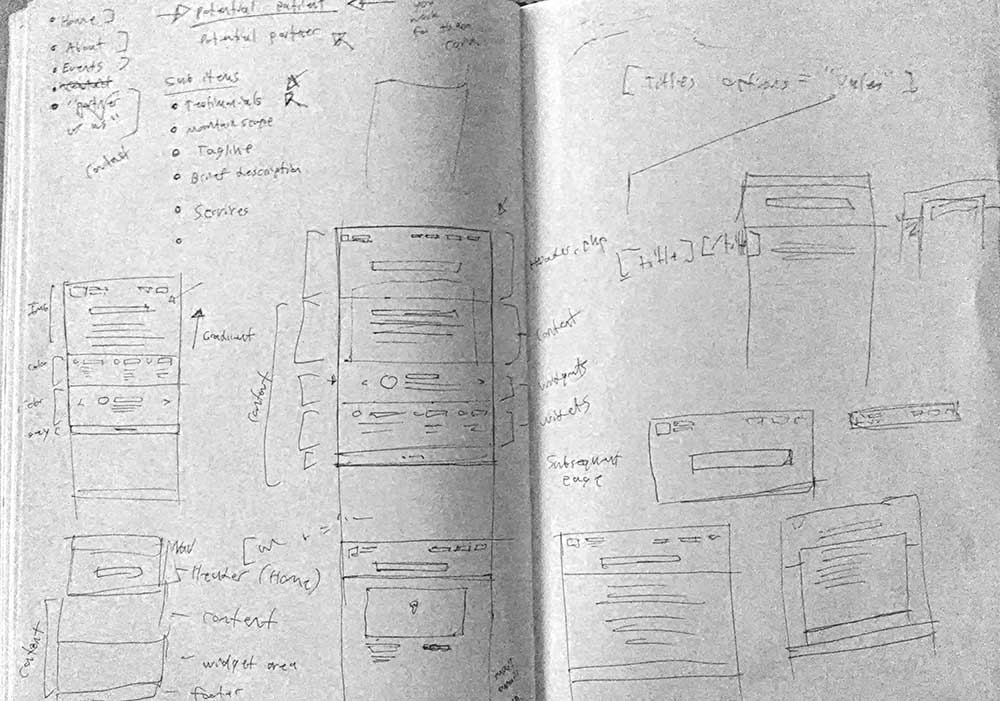 Home
About
Events
contact
"partner
w/ us"
contact
potential patient
potential partner
you
work
for them
Sub items
Testimonials
mountain scape
Tagline
Brief description
Services
Gradient
color
grey
content
Header.php
content
widgets
Nav
Header (Home)
content
content
widget area
footer
[titles options="values"]
[title][/title]
Subsequent
page